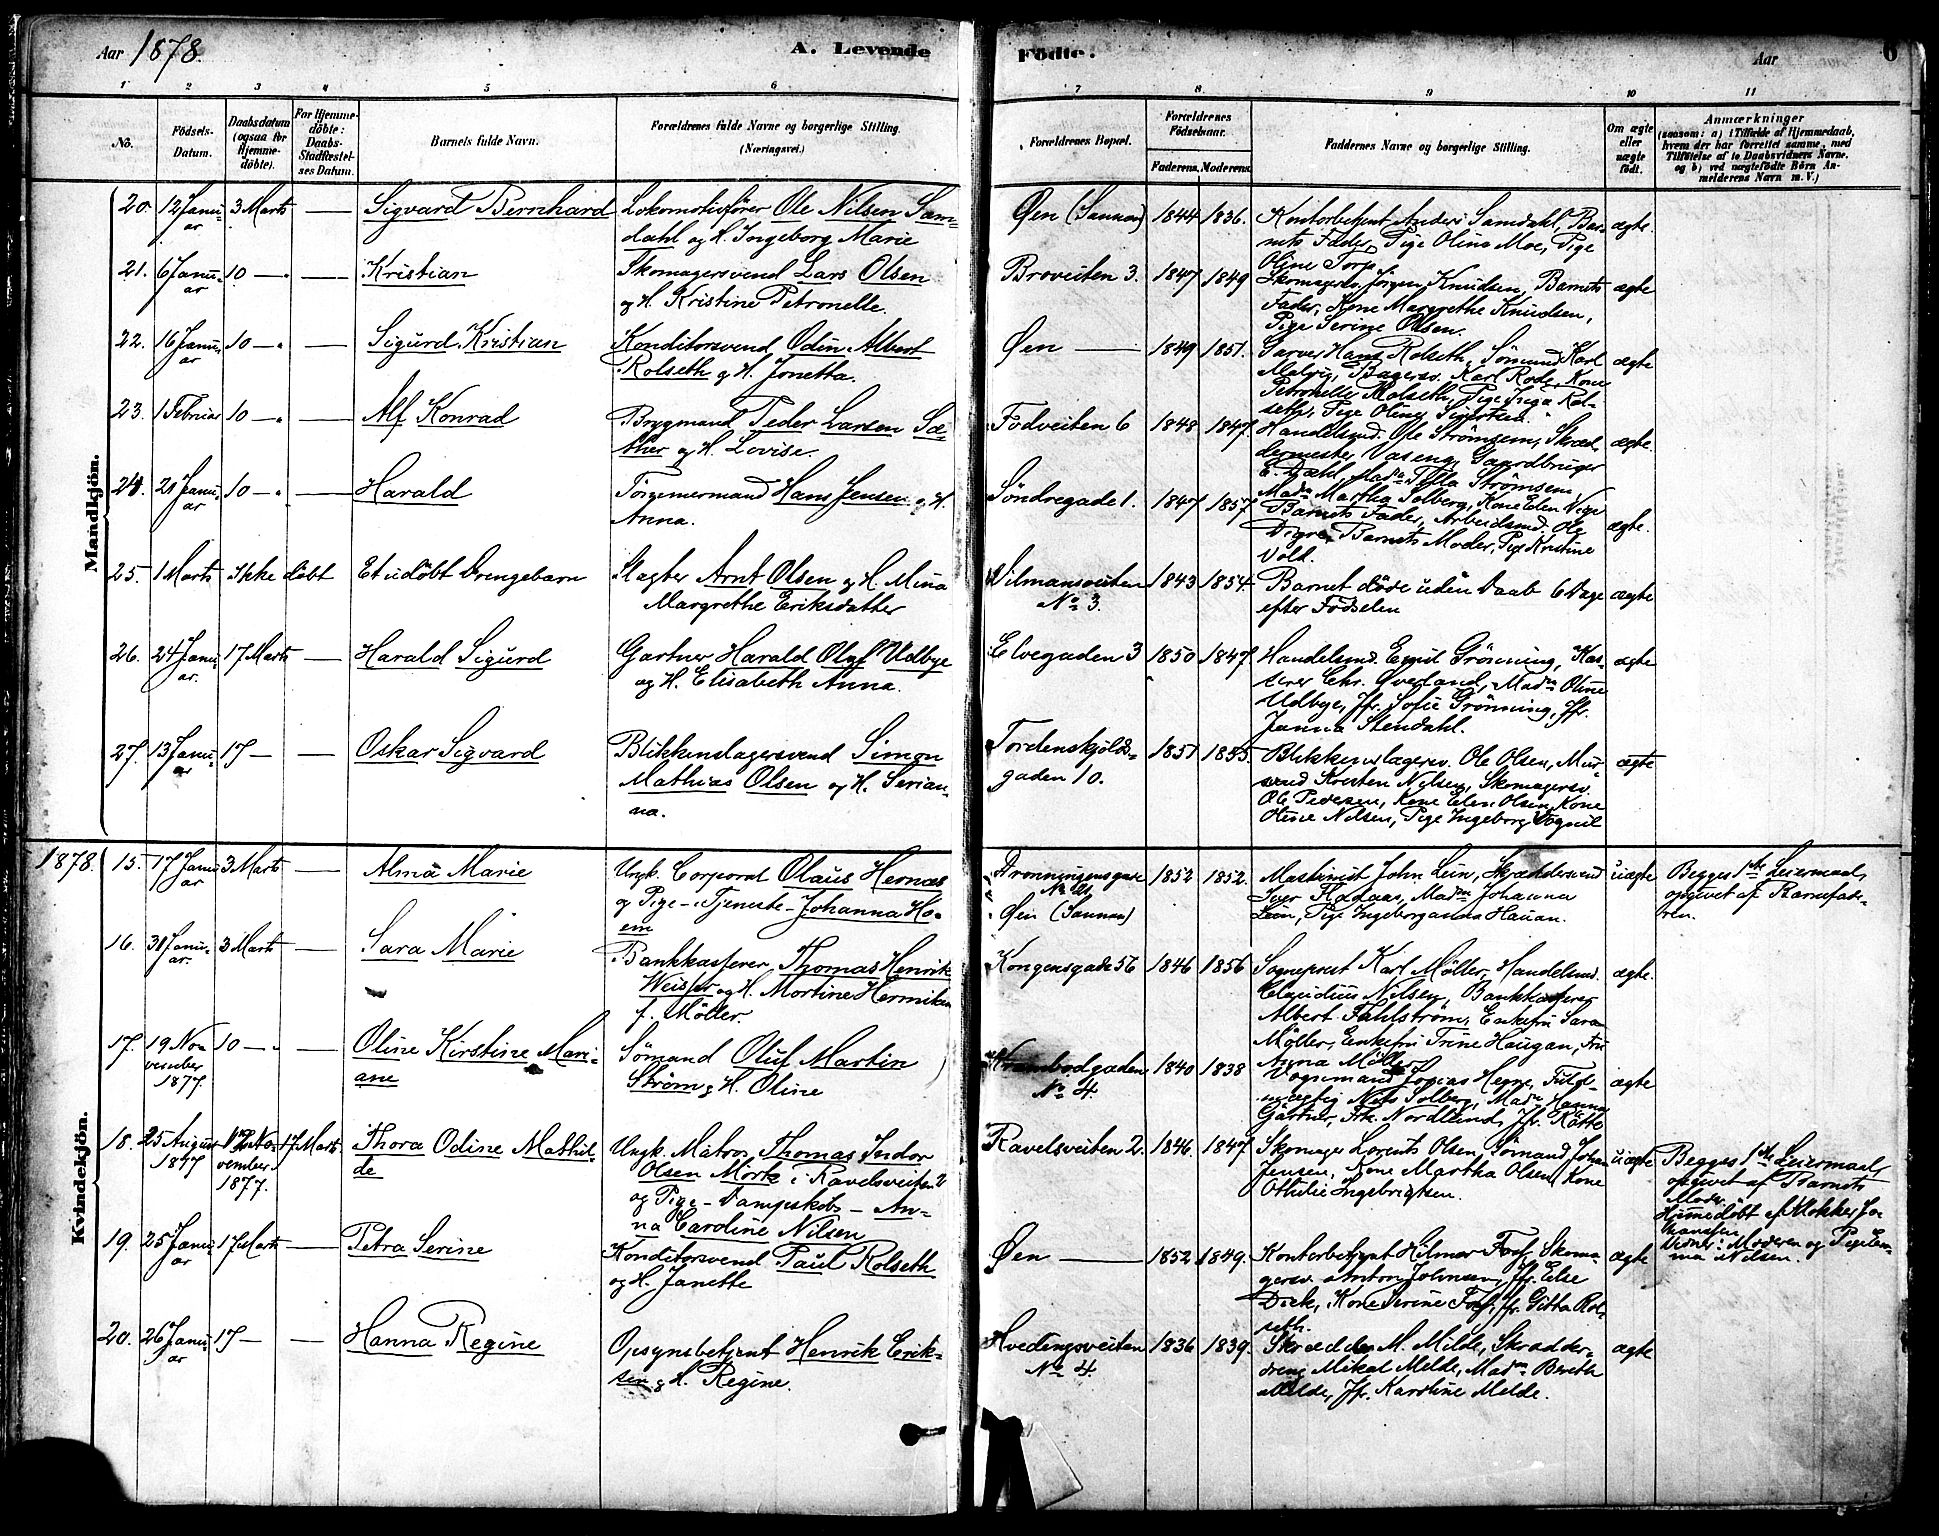 Aar 1878.
A. Levende
Födte.
Aar
6
1
2
3
4
5
6
7
8
9
10
11
No.
Födsels-
Datum.
Daabsdatum
(ogsaa for
Hjemme-
döbte).
For Hjemme-
döbte:
Daabs-
Stadfæstel-
ses Datum.
Barnets fulde Navn.
Forældrenes fulde Navne og borgerlige Stilling.
(Næringsvei.)
Forældrenes Bopæl.
Forældrenes
Födselsaar.
Faderens.
Moderens.
Faddernes Navne og borgerlige Stilling.
Om ægte
eller
uægte
födt.
Anmærkninger
(saasom: a) i Tilfælde af Hjemmedaab,
hvem der har forrettet samme, med
Tilföielse af to Daabsvidners Navne.
og b) ved uægtefödte Börn An-
melderens Navn m. V.)
Mandkjön.
20. 12 Janu-
ar
3 Marts
Sigvard Bernhard
Lokomotivförer Ole Nilsen Sam-
dahl og H. Ingeborg Marie
Øen (Sannan)
1844 1836.
Kontorbetjent Anders Samdahl, Bar-
nets Fader, Pige Olina Moe, Pige
Oline Torp.
ægte.
21. 6 Janu-
ar
10
Kristian
Skomagersvend Lars Olsen
og H. Kristine Petronelle.
Broveiten 3.
1847 1849
Skomagersv. Jörgen Knudsen, Barnets
Fader, Kone Margrethe Knudsen,
Pige Serine Olsen.
ægte
22. 16 Janu-
ar
10
Sigurd Kristian
Konditorsvend Odin Albert
Rolseth og H. Jonetta.
Øen
1849 1851.
Garver Hans Rolseth, Sömand Karl
Malvig, Bagersv. Karl Rode, Kone
Petronelle Rolseth, Pige Inga Rol-
seth, Pige Oline Sivertsen.
ægte
23. 1 Februar
10
Alf Konrad
Brygmand Peder Larsen Sæ-
ther og H. Lovise.
Fodveiten 6
1848 1847.
Handelsmd. Ole Strömsem, Skræd-
dermester Vaseng, Gaardbruger
E. Dahl, Mad. Tella Strömsem,
Mad. Martha Solberg, Kone Elen Vige
ægte
24. 21 Janu-
ar
10
Harald
Tömmermand Hans Jensen og H.
Anna.
Söndregade 1.
1847 1857
Barnets Fader, Arbeidsmd. Ole
Digre, Barnets Moder, Pige Kristine
Vold.
ægte.
25. 1 Marts
Ikke döbt
Et udöbt Drengebarn
Slagter Arnt Olsen og H. Mina
Margrethe Eriksdatter
Vilmansveiten
No 3.
1843 1854.
Barnet döde uden Daab 6 Dage
efter Födselen
ægte
26. 24 Janu-
ar.
17 Marts
Harald Sigurd
Gartner Harald Olaf Udbye
og H. Elisabeth Anna.
Elvegaden 3
1850 1847.
Handelsmd. Emil Grönning, Kas-
serer Chr. Øverland, Mad. Oline
Udbye, Jfr. Sofie Grönning, Jfr.
Janna Stendahl.
ægte
27. 13 Janu-
ar
17
Oskar Sigvard
Blikkenslagersvend Simon
Mathias Olsen og H. Serian-
na.
Tordenskjölds-
gaden 10.
1851 1855.
Blikkenslagersv. Ole Olsen, Mur-
svend Kresten Nilsen, Skomagersv.
Ole Pedersen, Kone Elen Olsen, Kone
Oline Nilsen, Pige Ingeborg Vognil
ægte
1878.
Kvindekjön.
15. 17 Janu-
ar
3 Marts
Alma Marie
Ungk. Corporal Olaus Hernæs
og Pige - Tjeneste - Johanna Ho-
em
Dronningensgade
Øen (Sannan)
1852 1852.
Maskinist John Lein, Skræddersvend
Iver Flataas, Mad. Johanna
Lein, Pige Ingeborganna Hauan.
uægte
Begges 1ste Leiermaal
opgivet af Barnefade-
ren.
16. 31 Janu-
ar.
3 Marts
Sara Marie
Bankkasserer Thomas Henrik
Weisser og H. Martine Hermikea
f. Möller.
Kongensgade 56
1846 1856
Sogneprest Karl Möller, Handelsmd.
Claudius Nilsen, Bankkasserer
Albert Fahlström, Enkefru Sara
Möller, Enkefru Trine Haugan, Fru
Anna Möller
ægte.
17. 19 No-
vember
1877.
10
Oline Kirstine Mari-
ane
Sömand Oluf Martin
Ström og H. Oline
Krambodgaden
No 4.
1840 1838
Vognmand Jonias Hegge, Fuld-
mægtig Nils Solberg, Mad. Hanna
Gärtner, Frk. Nordlund, Jfr. Rötte
ægte
18. 25 August
1877
12 No-
vember
1877.
17 Marts.
Thora Odine Mathil-
de
Ungk. Matros Thomas Isidor
Olsen Mörk i Ravelsveiten 2
og Pige - Dampskibs - An-
na Caroline Nilsen
Ravelsveiten 2.
1846. 1847.
Skomager Lorents Olsen, Sömand Johan
Jensen, Kone Martha Olsen, Kone
Othilie Ingebrigtsen.
uægte
Begges 1ste Leiermaal,
opgivet af Barnets
Moder.
Hjemmedöbt af Klokker Jo-
hansen.
Vidner: Moderen og Pige Em-
ma Nilsen.
19. 25 Janu-
ar
17 Marts
Petra Serine
Konditorsvend Paul Rolseth
og H. Janette
Øen
1852 1849.
Kontorbetjent Hilmar Foss, Skoma-
gersv. Anton Johnsen, Jfr. Else
Dick, Kone Serine Foss, Jfr. Gitta Rol-
seth.
ægte
20. 26 Janu-
ar
17
Hanna Regine
Opsynsbetjent Henrik Erik-
sen og H. Regine.
Hvedingsveiten
No 4.
1836 1839.
Skrædder M. Milde, Skrædder-
dreng Mikal Melde, Mad. Bereth
Milde, Jfr. Karoline Melde.
ægte